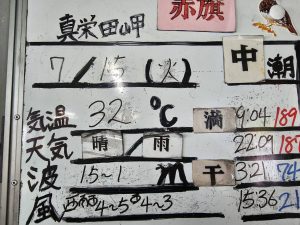 赤旗
真栄田岬
7/15(火) 中潮
気温 32℃ 満 9:04 189
天気 晴/雨 22:09 187
波 1.5~1m 干 3:21 74
風 4~5 4~3 15:36 21